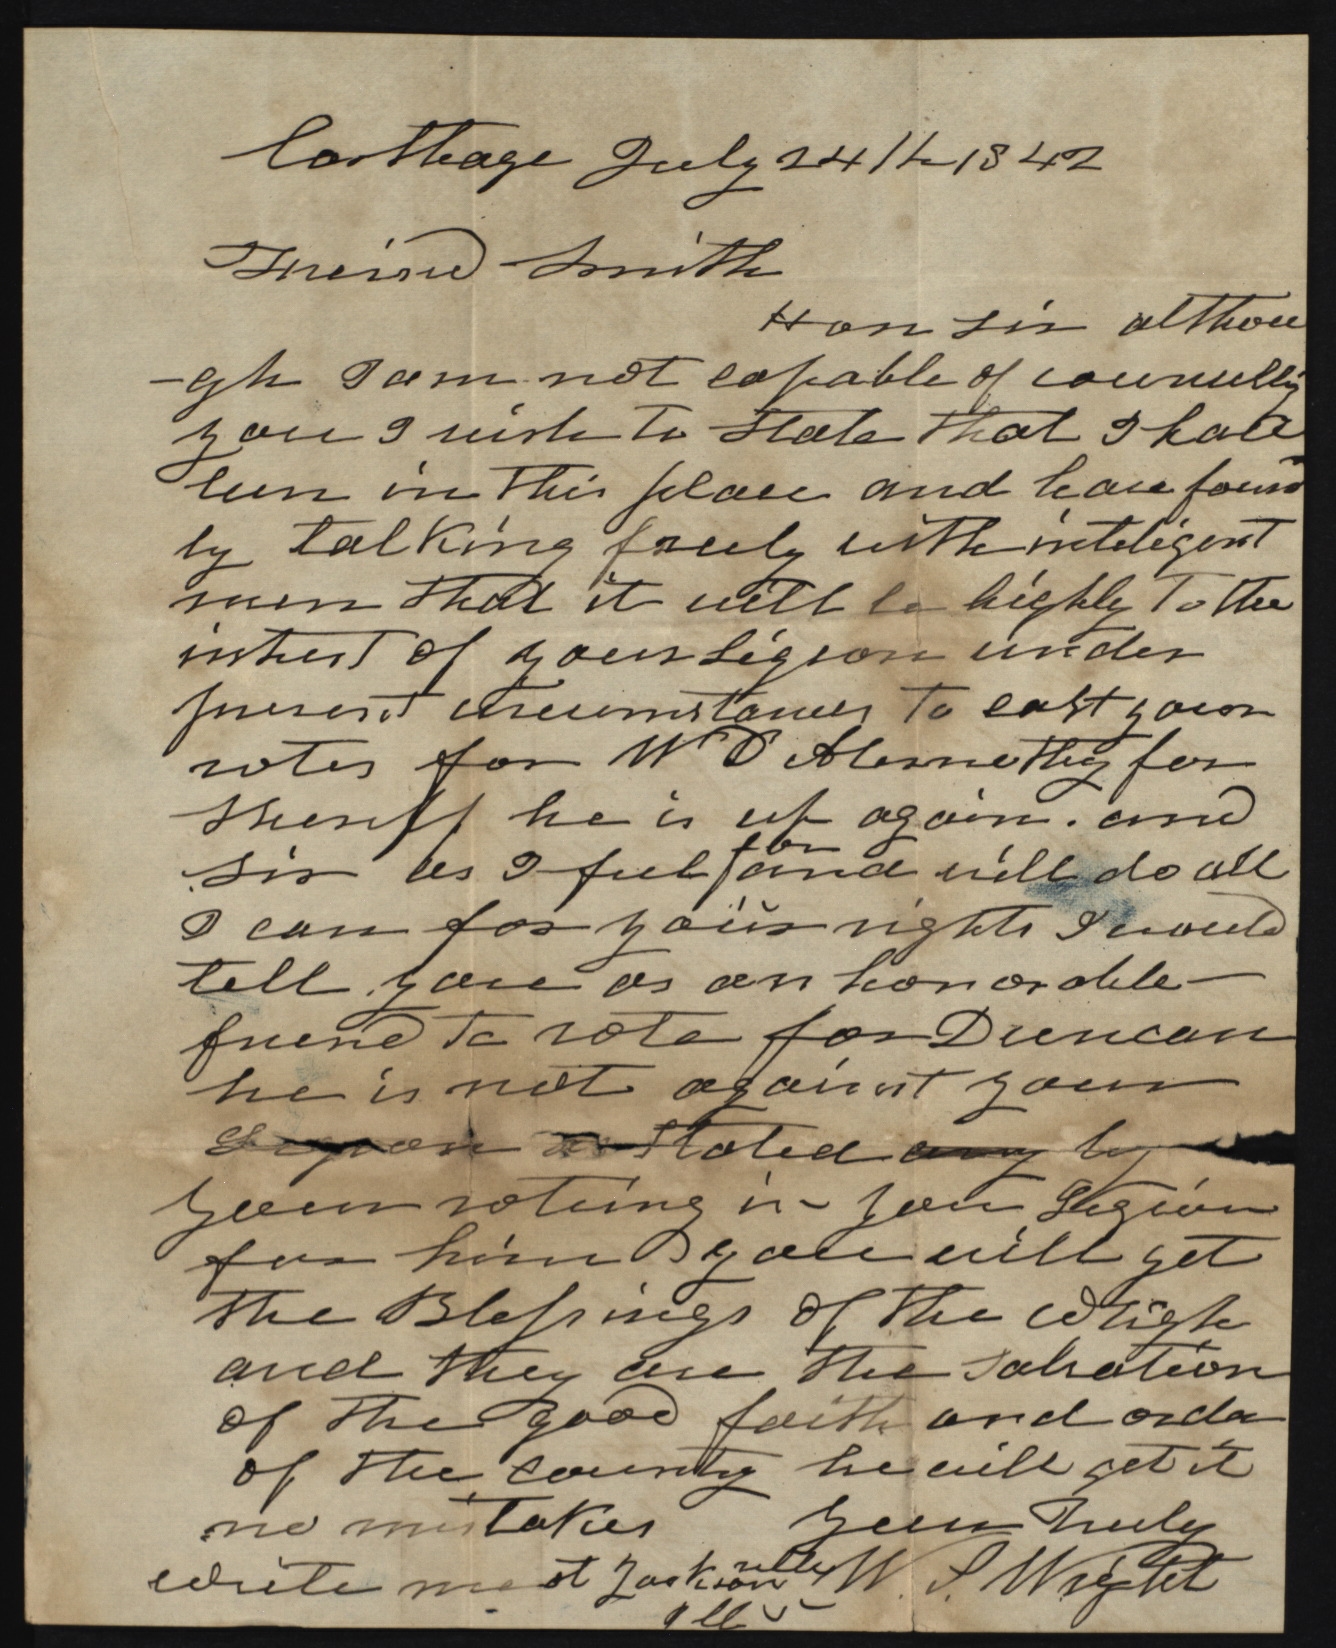 Carthage July 24th 1842
Freind Smith
Hon sir althou
-gh I am not capable of councilling
you I wish to state that I have
been in this place and have found
by talking freely with inteligent
men that it will be highly to the
intrest of your Legion under
present circumstances to cast your
votes for W D Abernethy for
Sheriff he is up again. and
sir as I feel for and will do all
I can for your rights I would
tell you as an honorable
friend to vote for Duncan
he is not against your
Legion as stated any by
your voting in your Legion
for him you will get
the Blessings of the Whigh
and they are the salvation
of the good faith and order
of the county he will get it
no mistakes Your Truly
write me at Jacksonville W. S. Wright
Ill